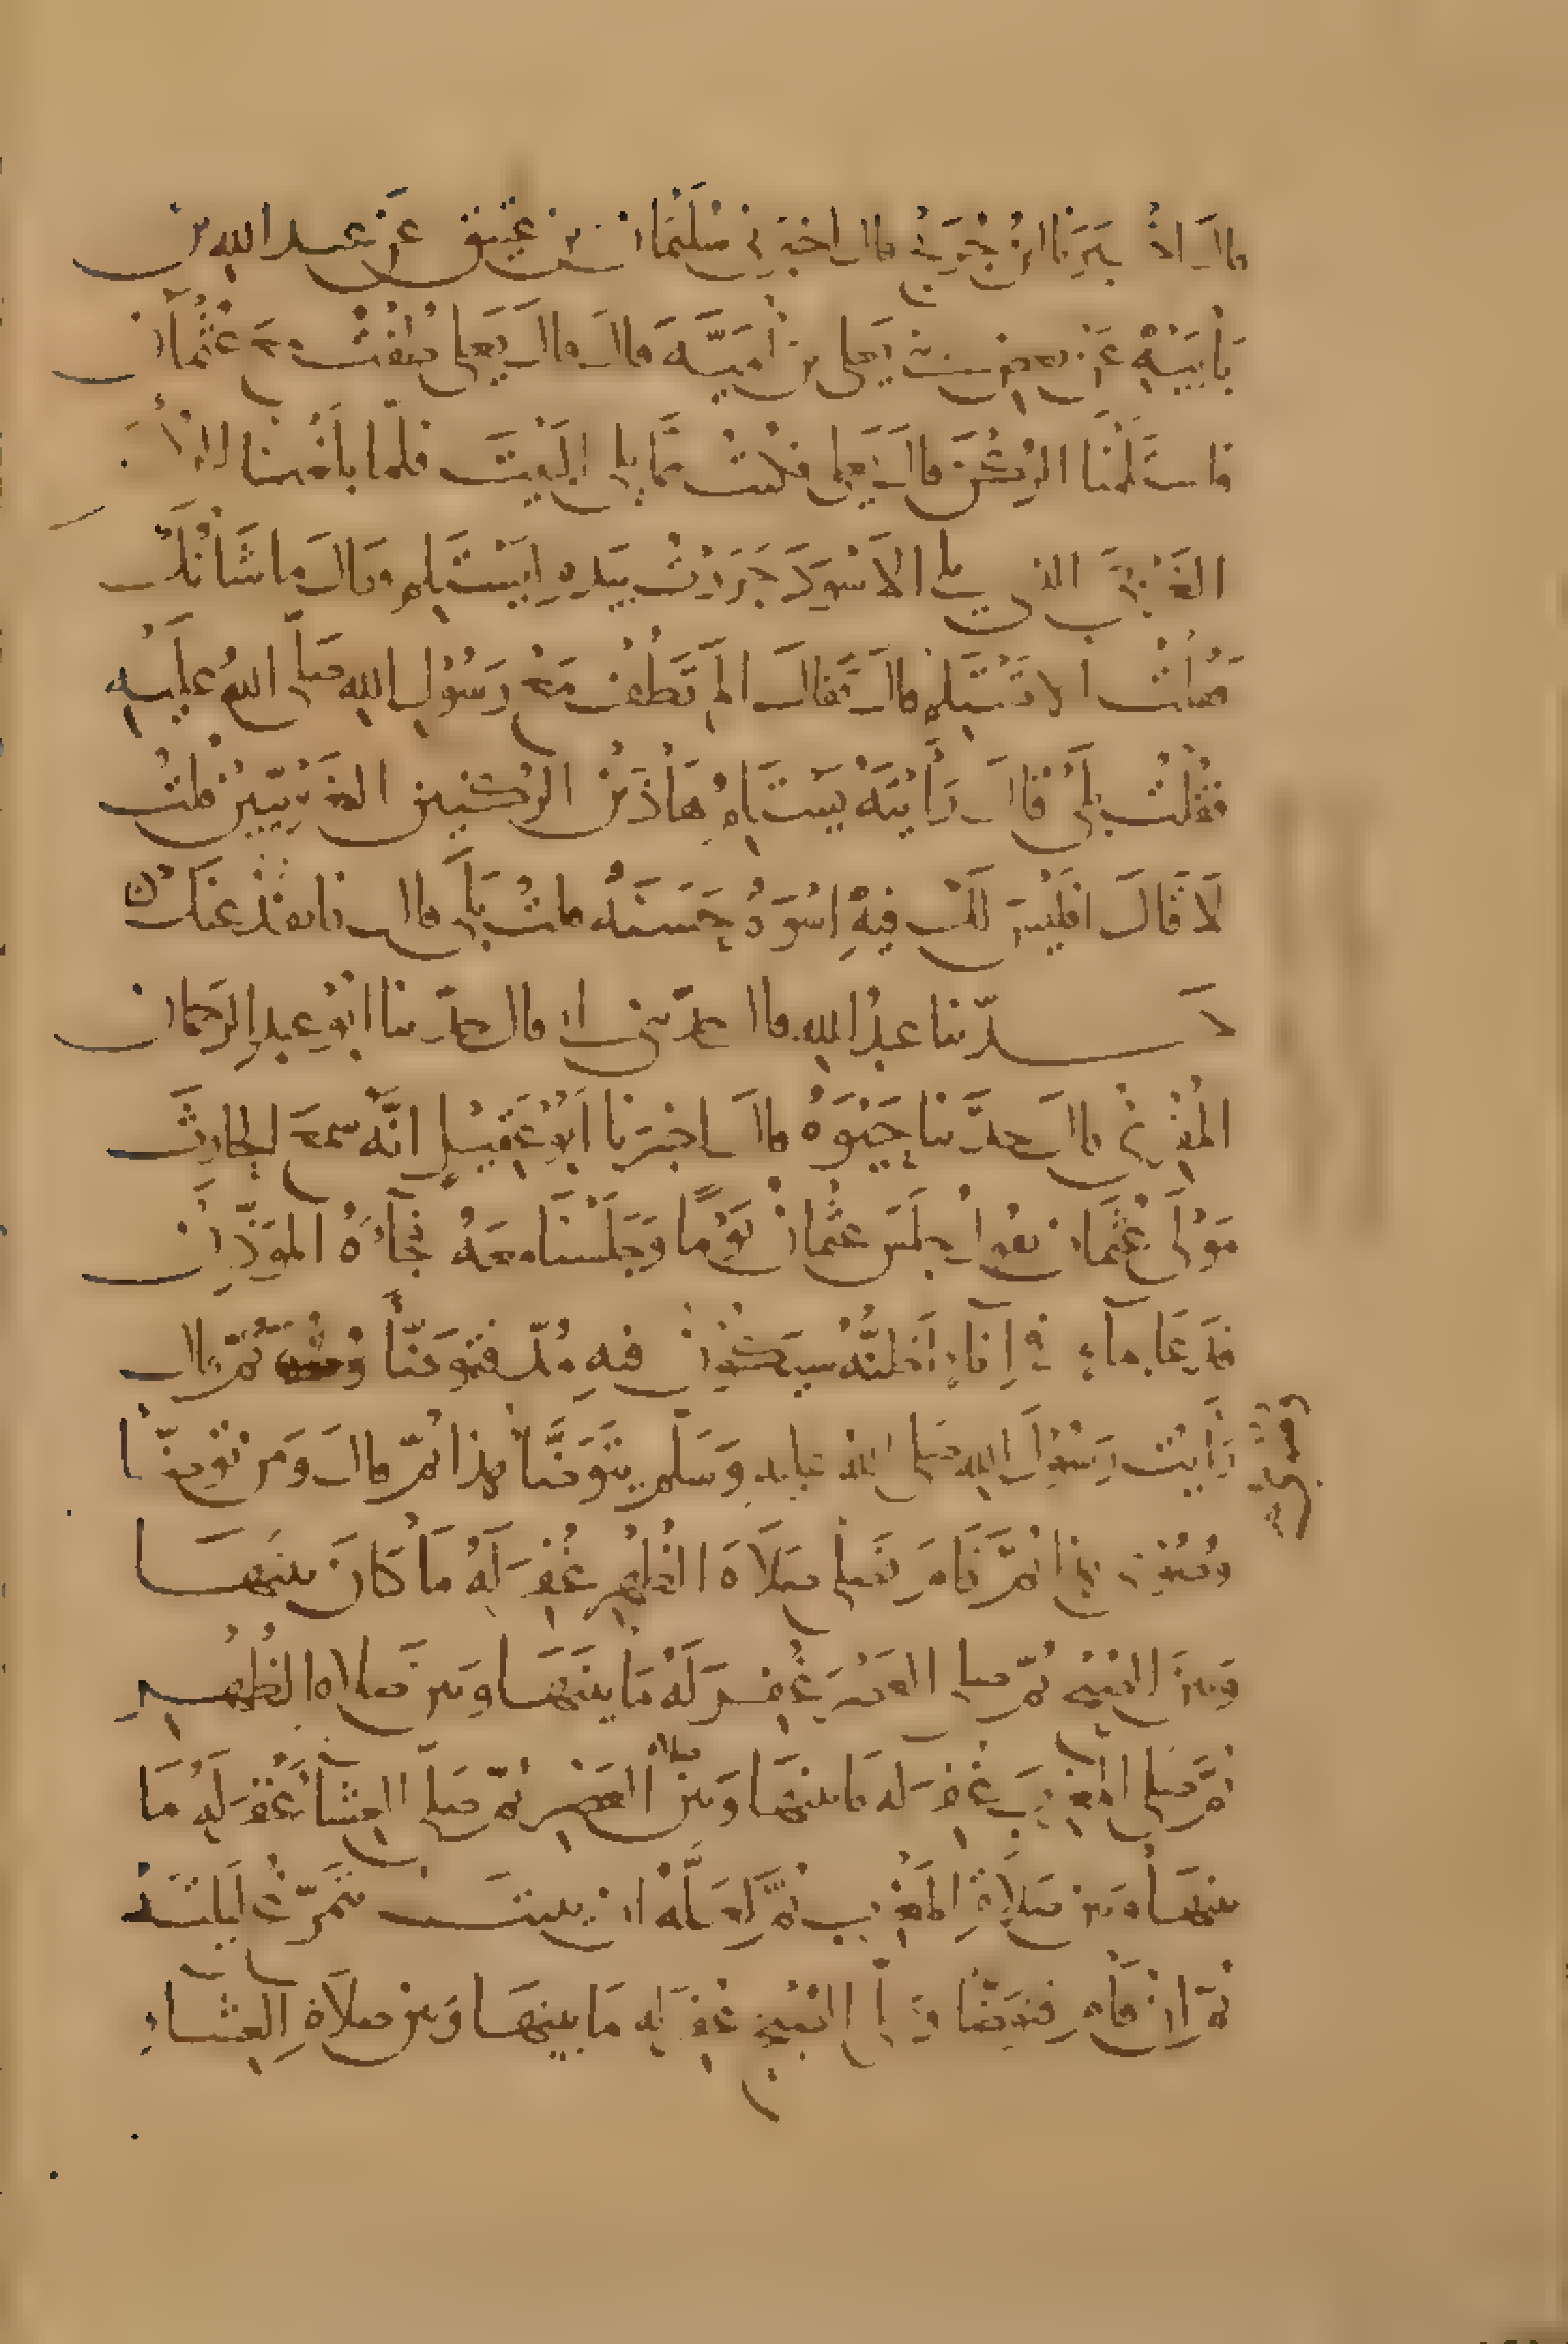 قال اخبرنا ابن جريج قال اخبرني سليمان بن عتيق عن عبد الله بن
بابيه عن بعض بني يعلى بن أمية قال قال يعلى طفت مع عثمان
فاستلمنا الركن قال يعلى فكنت مما يلي البيت فلما بلغنا الركن
الغربي الذي يلي الاسود جررت بيده ليستلم وقال ما شأنك
فقلت الا تستلم قال فقال الم تطف مع رسول الله صلى الله عليه
فقلت بلى قال رأيته يستلم هاذين الركنين الغربيين قلت
لا قال افليس لك فيه اسوة حسنة قلت بلى قال فانفذ عنك
حدثنا عبد الله قال حدثني ابي قال حدثنا ابو عبد الرحمان
المقرئ قال حدثنا حيوة قال اخبرنا ابو عقيل انه سمع الحارث
مولى عثمان يقول جلس عثمان يوما وجلسنا معه فجاءه الموذن
فدعا بماء في اناء اظنه سيكون فيه مد فتوضأ ثم قال
رأيت رسول الله صلى الله عليه وسلم يتوضأ هذا ثم قال ومن توضأ
وضوئي هذا ثم قام فصلى صلاة الظهر غفر له ما كان بينها
وبين الصبح ثم صلى العصر غفر له ما بينها وبين صلاة الظهر
ثم صلى المغرب غفر له ما بينها وبين صلاة العصر ثم صلى العشاء غفر له ما
بينها وبين صلاة المغرب ثم لعله ان يبيت يتمرغ ليلته
ثم ان قام فتوضأ وصلى الصبح غفر له ما بينها وبين صلاة العشاء